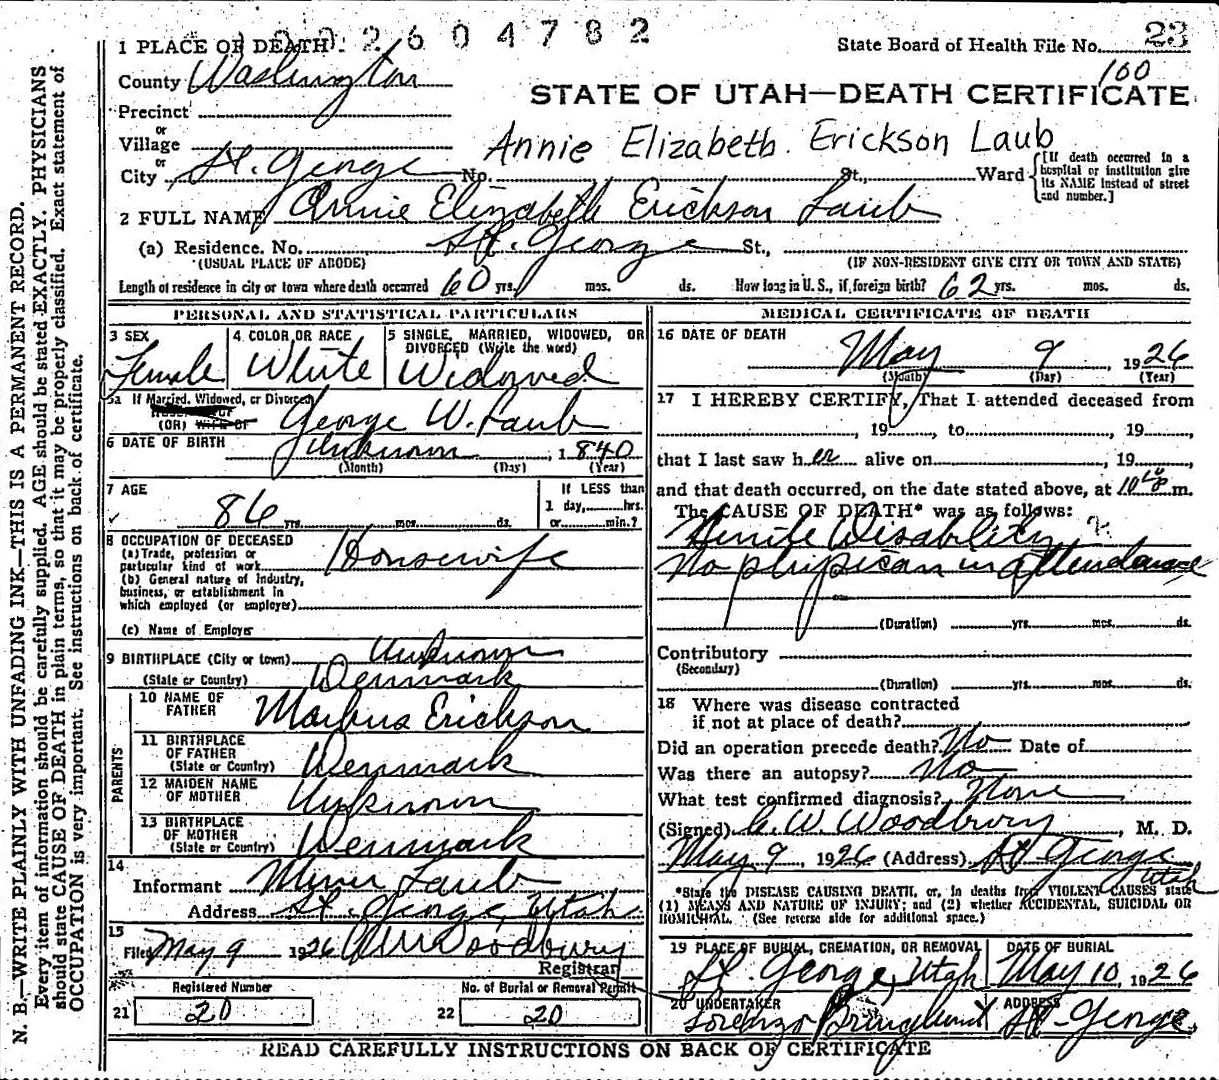 1002604782
23
1 PLACE OF DEATH
State Board of Health File No.
100
County Washington
STATE OF UTAH—DEATH CERTIFICATE
Precinct
or
Village
Annie Elizabeth Erickson Laub
or
City St. George No. St., Ward [If death occurred in a hospital or institution give its NAME instead of street and number.]
2 FULL NAME Annie Elizabeth Erickson Laub
(a) Residence. No. St. George St.,
(USUAL PLACE OF ABODE) (IF NON-RESIDENT GIVE CITY OR TOWN AND STATE)
Length of residence in city or town where death occurred 60 yrs. mos. ds. How long in U. S., if foreign birth? 62 yrs. mos. ds.
PERSONAL AND STATISTICAL PARTICULARS
3 SEX
Female
4 COLOR OR RACE
White
5 SINGLE, MARRIED, WIDOWED, OR
DIVORCED (Write the word)
Widowed
5a If Married, Widowed, or Divorced
HUSBAND OF
(OR) WIFE OF George W. Laub
6 DATE OF BIRTH Unknown, 1840
(Month) (Day) (Year)
7 AGE
86 yrs. mos. ds.
If LESS than
1 day, hrs.
or min.?
8 OCCUPATION OF DECEASED
(a) Trade, profession or
particular kind of work Housewife
(b) General nature of Industry,
business, or establishment in
which employed (or employer)
(c) Name of Employer
9 BIRTHPLACE (City or town) Unknown
(State or Country) Denmark
PARENTS
10 NAME OF
FATHER Markus Erickson
11 BIRTHPLACE
OF FATHER
(State or Country) Denmark
12 MAIDEN NAME
OF MOTHER Unknown
13 BIRTHPLACE
OF MOTHER
(State or Country) Denmark
14
Informant Laub
Address St. George, Utah
15
Filed May 9 1926 Woodbury
Registrar
Registered Number
21 20
No. of Burial or Removal Permit
22 20
MEDICAL CERTIFICATE OF DEATH
16 DATE OF DEATH
May 9, 1926
(Month) (Day) (Year)
17 I HEREBY CERTIFY, That I attended deceased from
, 19, to , 19,
that I last saw her alive on , 19
and that death occurred, on the date stated above, at 10 m.
The CAUSE OF DEATH* was as follows:
Senile Disability
No physican in attendance
(Duration) yrs. mos. ds.
Contributory
(Secondary)
(Duration) yrs. mos. ds.
18 Where was disease contracted
if not at place of death?
Did an operation precede death? No Date of
Was there an autopsy? No
What test confirmed diagnosis? None
(Signed) W. Woodbury, M. D.
May 9, 1926 (Address) St George
Utah
*State the DISEASE CAUSING DEATH, or, in deaths from VIOLENT CAUSES state
(1) MEANS AND NATURE OF INJURY; and (2) whether ACCIDENTAL, SUICIDAL OR
HOMICIDAL. (See reverse side for additional space.)
19 PLACE OF BURIAL, CREMATION, OR REMOVAL
St. George, Utah
DATE OF BURIAL
May 10, 1926
20 UNDERTAKER
Lorenzo Bringhurst
ADDRESS
St. George
READ CAREFULLY INSTRUCTIONS ON BACK OF CERTIFICATE
N. B.—WRITE PLAINLY WITH UNFADING INK—THIS IS A PERMANENT RECORD.
Every item of information should be carefully supplied. AGE should be stated EXACTLY. PHYSICIANS
should state CAUSE OF DEATH in plain terms, so that it may be properly classified. Exact statement of
OCCUPATION is very important. See instructions on back of certificate.